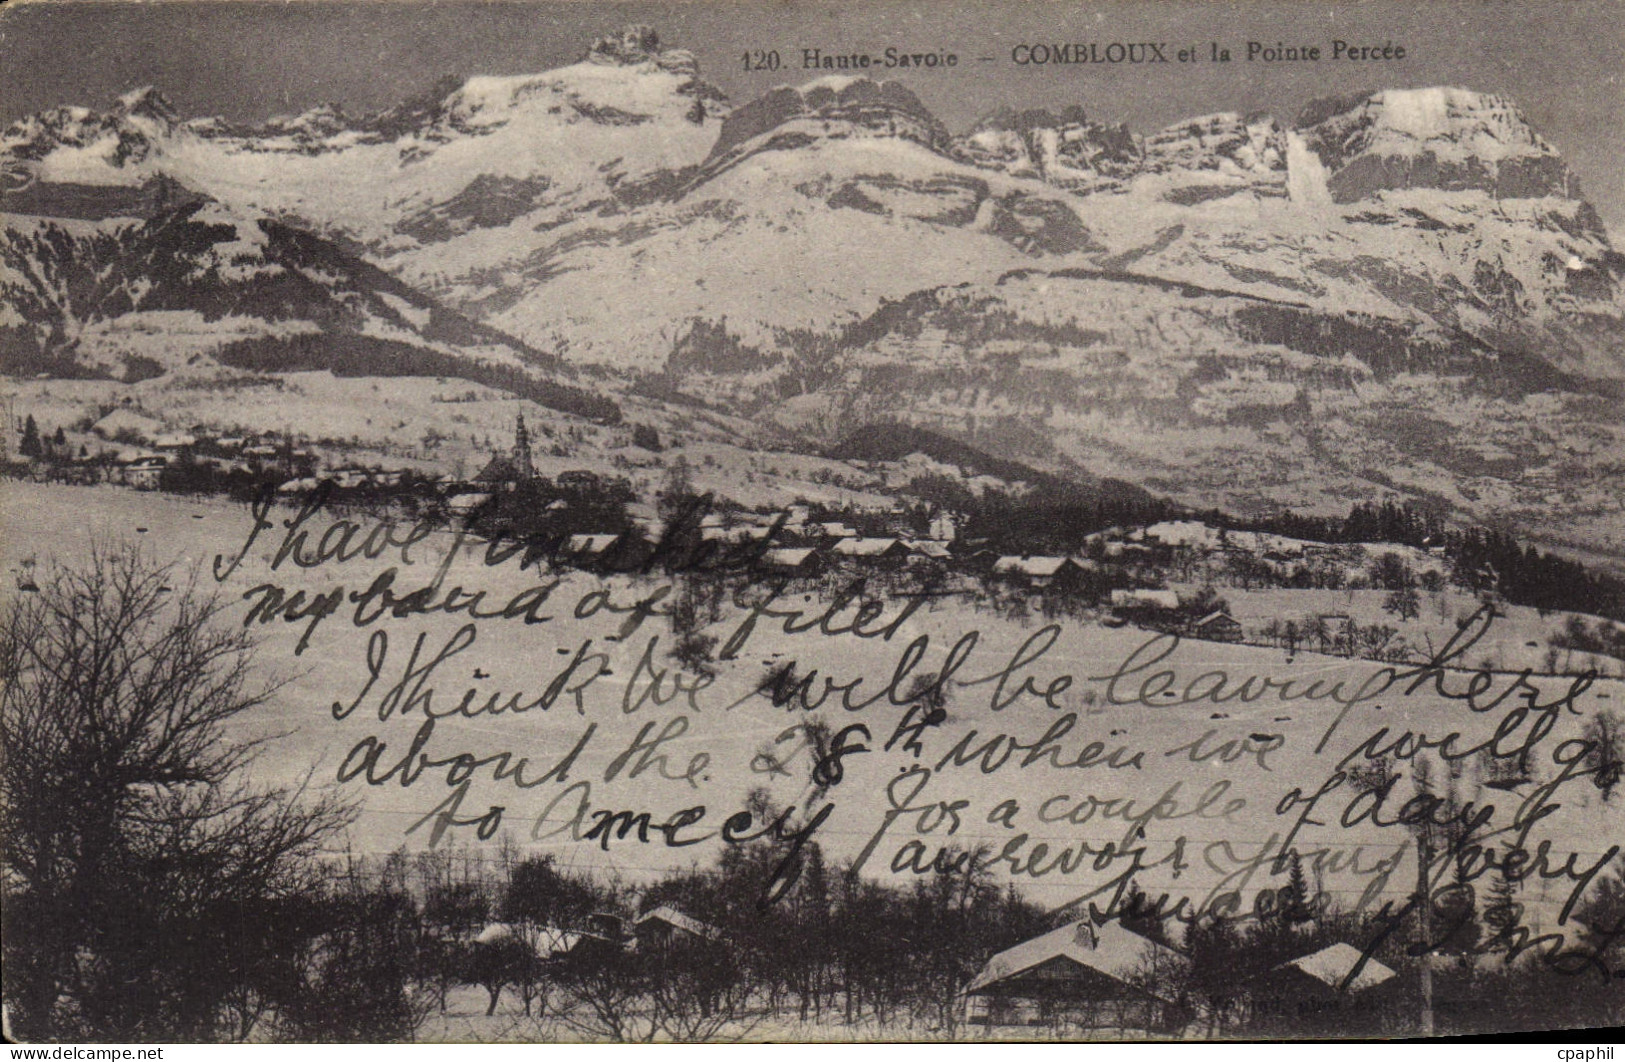 120. Haute-Savoie - COMBLOUX et la Pointe Percée
I have finished
my band of filet
I think we will be leaving here
about the 28th when we will go
to Annecy for a couple of days
aurevoir yours very
sincerely
phot.
cpaphil